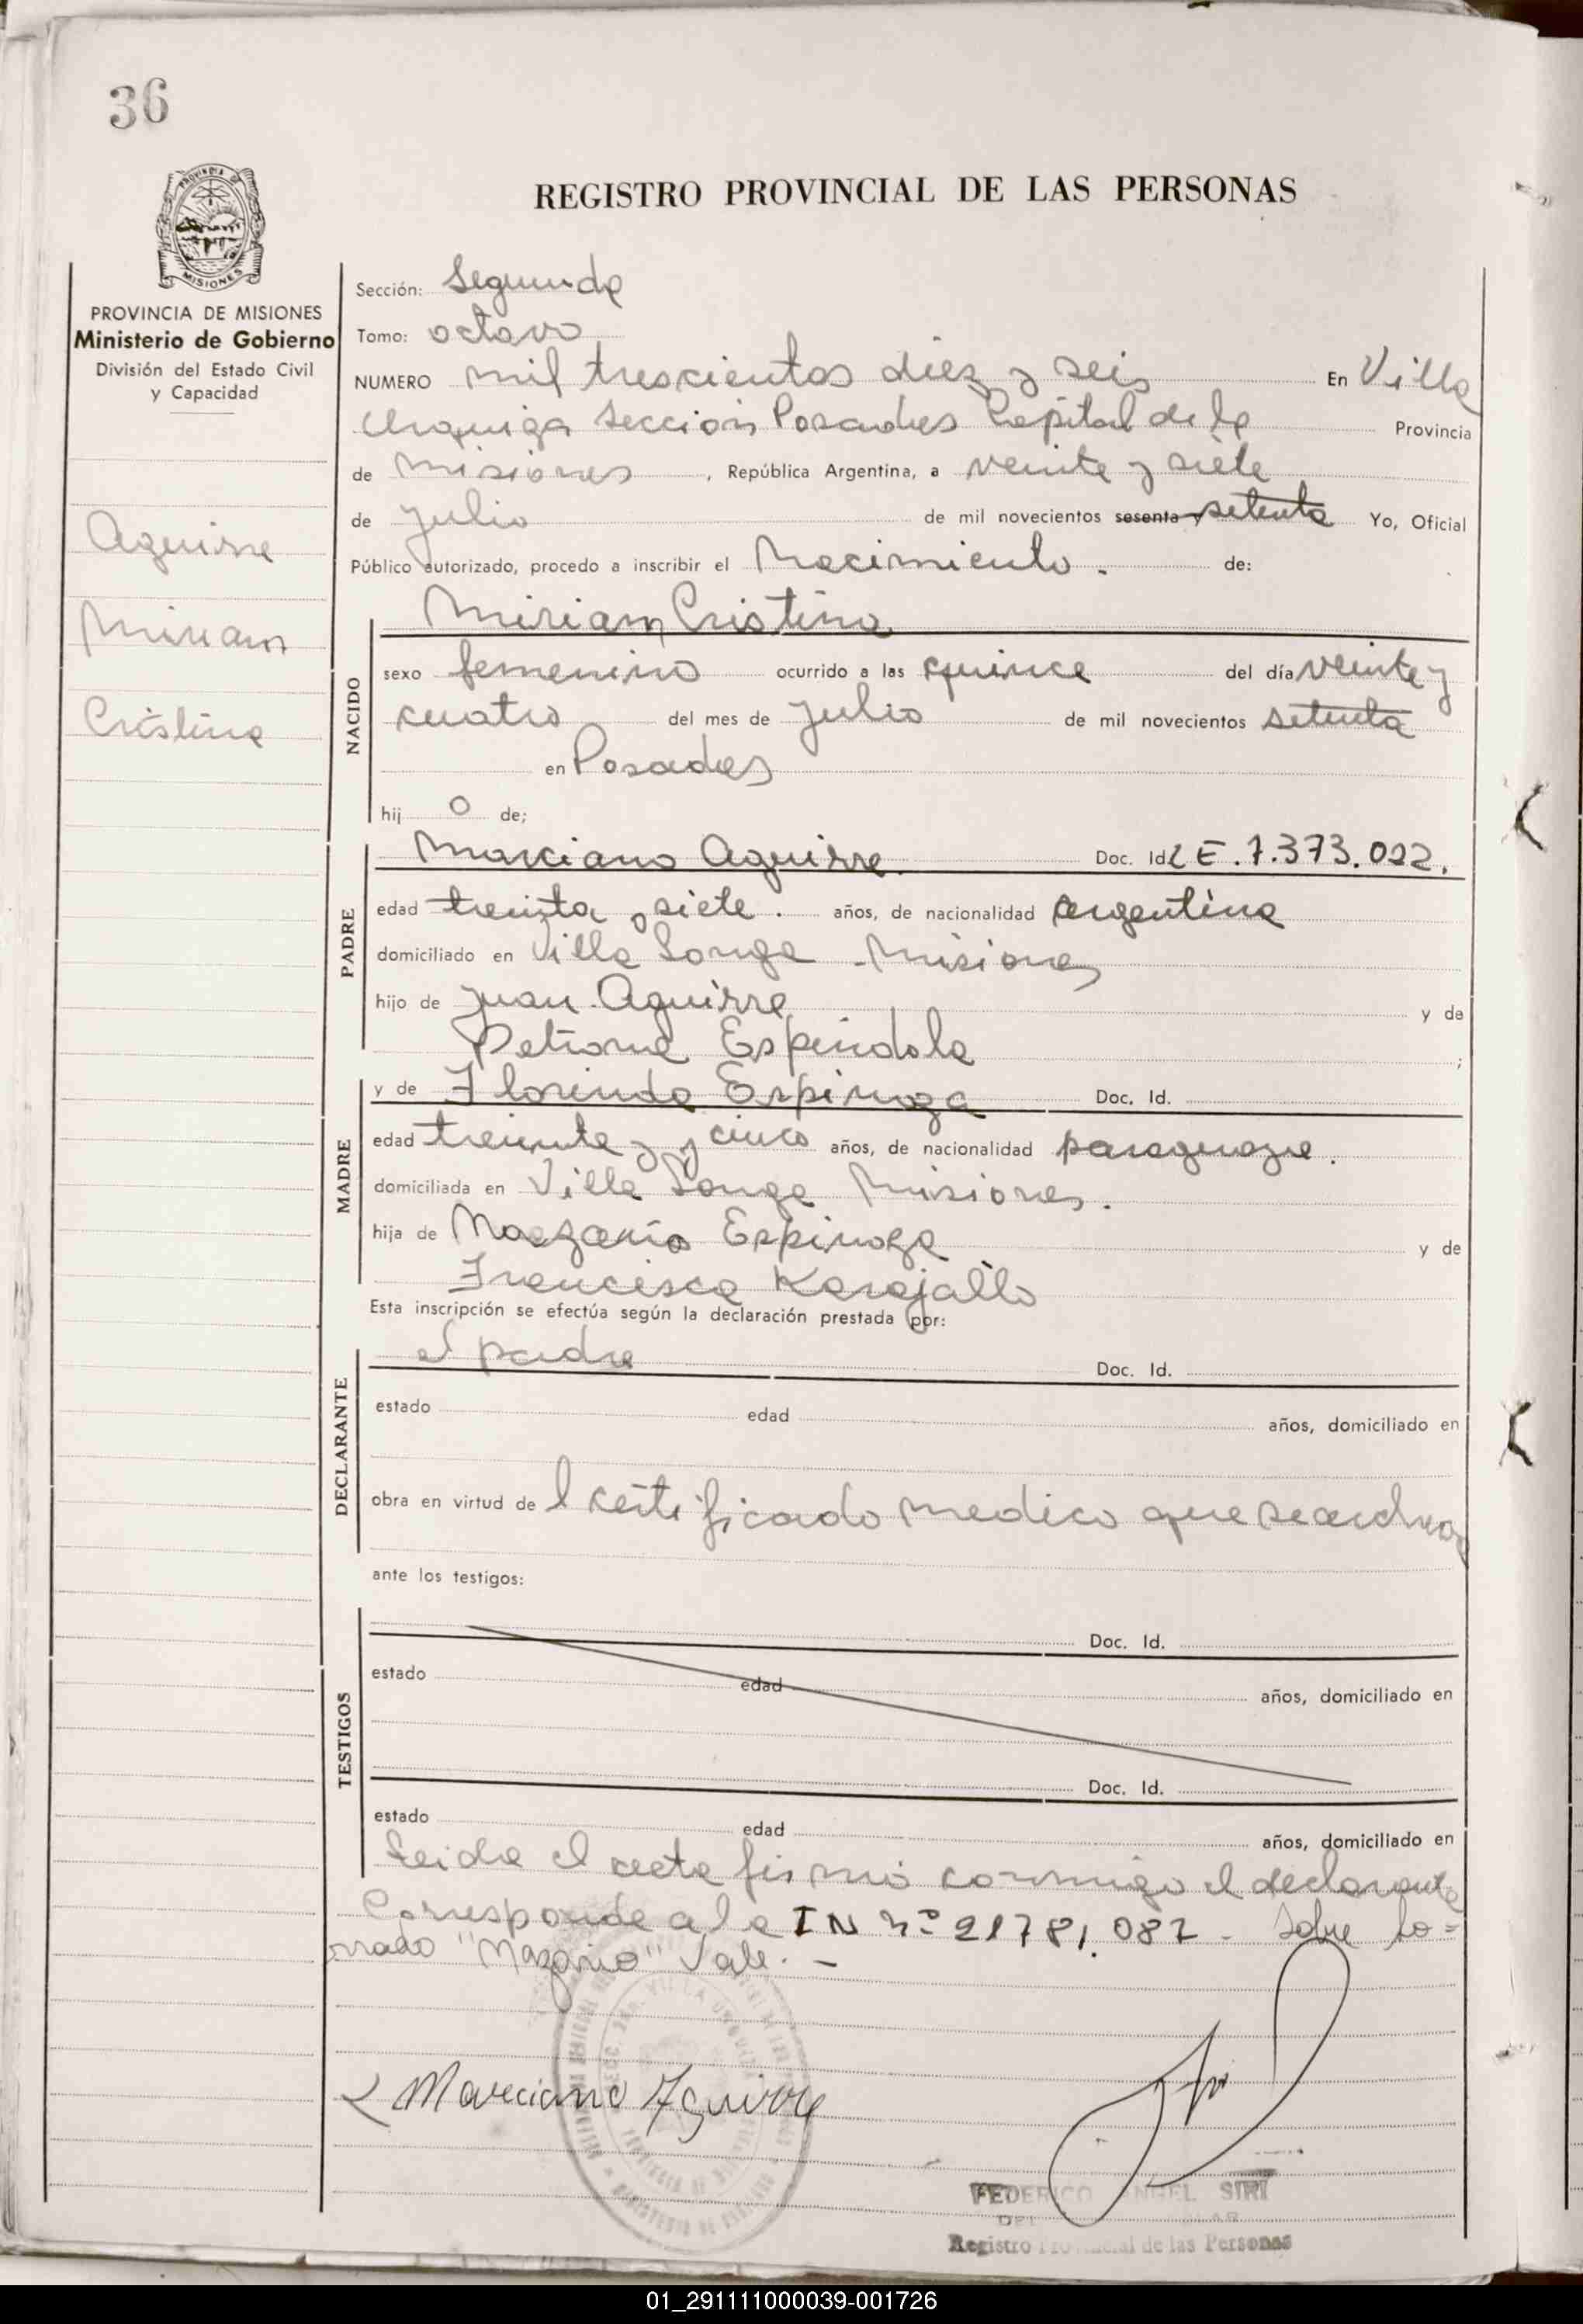 36
REGISTRO PROVINCIAL DE LAS PERSONAS
PROVINCIA DE MISIONES
Ministerio de Gobierno
División del Estado Civil
y Capacidad
Aguirre
Miriam
Cristina
Sección: Segunda
Tomo: octavo
NUMERO mil trescientos diez y seis En Villa
Urquiza Sección Posadas Capital de la Provincia
de Misiones, República Argentina, a veinte y siete
de Julio de mil novecientos sesenta y setenta Yo, Oficial
Público autorizado, procedo a inscribir el Nacimiento. de:
Miriam Cristina
NACIDO
sexo femenino ocurrido a las quince del día veinte y
cuatro del mes de Julio de mil novecientos setenta
en Posadas
hij o de;
PADRE
Marciano Aguirre. Doc. Id LE.7.373.022.
edad treinta y siete. años, de nacionalidad argentina
domiciliado en Villa Longa Misiones
hijo de Juan Aguirre y de
Petrona Espindola ;
MADRE
y de Florinda Espinoza Doc. Id.
edad treinta y cinco años, de nacionalidad paraguaya.
domiciliada en Villa Longa Misiones.
hija de Mazario Espinoza y de
Francisca Karajallo
Esta inscripción se efectúa según la declaración prestada por:
DECLARANTE
el padre Doc. Id.
estado edad años, domiciliado en
obra en virtud de l certificado medico que se archiva
ante los testigos:
TESTIGOS
Doc. Id.
estado edad años, domiciliado en
Doc. Id.
estado edad años, domiciliado en
Leida el acta firmó conmigo el declarante
Corresponde a la IN nº 21781.082 - Sobre bo=
rrado "Mazario" Vale. -
Marciano Aguirre
FEDERICO ANGEL SIRI
Registro Provincial de las Personas
01_291111000039-001726